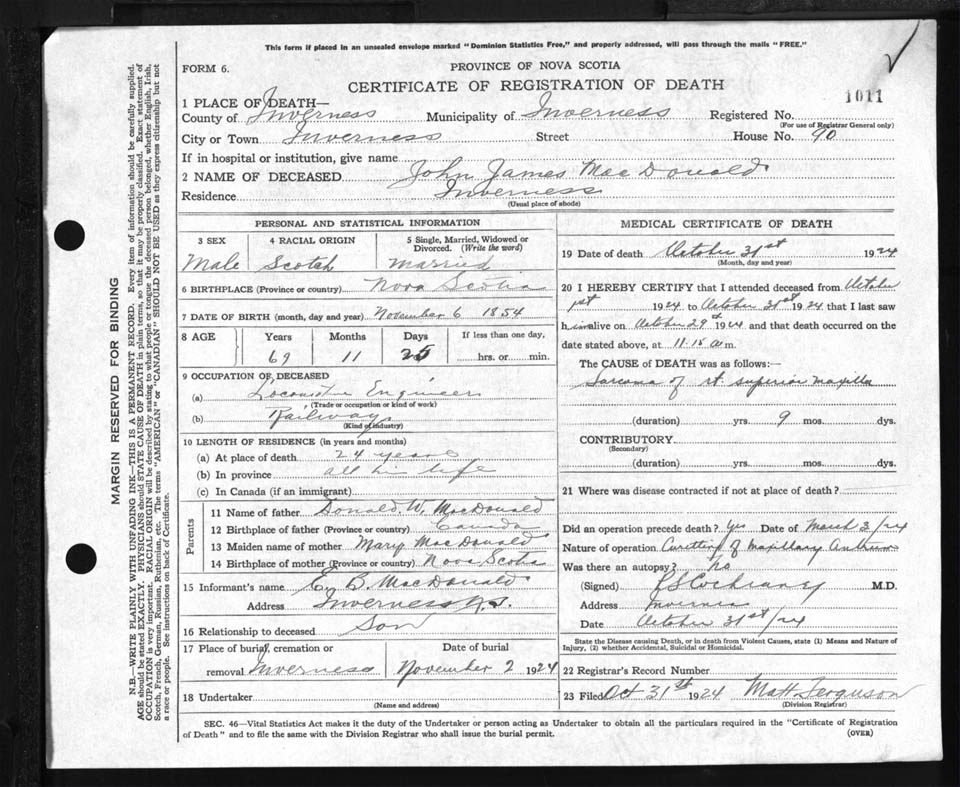 This form if placed in an unsealed envelope marked "Dominion Statistics Free," and properly addressed, will pass through the mails "FREE."
FORM 6.
PROVINCE OF NOVA SCOTIA
CERTIFICATE OF REGISTRATION OF DEATH
1011
1 PLACE OF DEATH—
County of Inverness Municipality of Inverness Registered No.
(For use of Registrar General only)
City or Town Inverness Street House No. 90
If in hospital or institution, give name
2 NAME OF DECEASED John James MacDonald
Residence Inverness
(Usual place of abode)
PERSONAL AND STATISTICAL INFORMATION
3 SEX 4 RACIAL ORIGIN 5 Single, Married, Widowed or Divorced. (Write the word)
Male Scotch Married
6 BIRTHPLACE (Province or country) Nova Scotia
7 DATE OF BIRTH (month, day and year) November 6 1854
8 AGE Years Months Days If less than one day,
69 11 25 hrs. or min.
9 OCCUPATION OF DECEASED
(a) Locomotive Engineer
(Trade or occupation or kind of work)
(b) Railway
(Kind of industry)
10 LENGTH OF RESIDENCE (in years and months)
(a) At place of death 24 years
(b) In province all his life
(c) In Canada (if an immigrant)
Parents
11 Name of father Donald W. MacDonald
12 Birthplace of father (Province or country) Canada
13 Maiden name of mother Mary MacDonald
14 Birthplace of mother (Province or country) Nova Scotia
15 Informant's name E. B. MacDonald
Address Inverness N.S.
16 Relationship to deceased Son
17 Place of burial, cremation or Date of burial
removal Inverness November 2 1924
18 Undertaker
(Name and address)
MEDICAL CERTIFICATE OF DEATH
19 Date of death October 31st 1924
(Month, day and year)
20 I HEREBY CERTIFY that I attended deceased from October
1st 1924 to October 31st 1924 that I last saw
him alive on October 29th 1924 and that death occurred on
date stated above, at 11.15 a.m.
The CAUSE OF DEATH was as follows:—
Sarcoma of rt. superior maxilla
(duration) yrs. 9 mos. dys.
CONTRIBUTORY
(Secondary)
(duration) yrs. mos. dys.
21 Where was disease contracted if not at place of death?
Did an operation precede death? yes Date of March 3/24
Nature of operation Curetting of maxillary Antrum
Was there an autopsy? No
(Signed) M.D.
Address Inverness
Date October 31st/24
State the Disease causing Death, or in death from Violent Causes, state (1) Means and Nature of
Injury, (2) whether Accidental, Suicidal or Homicidal.
22 Registrar's Record Number
23 Filed Oct 31st 1924 Matt Ferguson
(Division Registrar)
SEC. 46—Vital Statistics Act makes it the duty of the Undertaker or person acting as Undertaker to obtain all the particulars required in the "Certificate of Registration
of Death" and to file the same with the Division Registrar who shall issue the burial permit.
(OVER)
MARGIN RESERVED FOR BINDING
N.B.—WRITE PLAINLY WITH UNFADING INK—THIS IS A PERMANENT RECORD. Every item of information should be carefully supplied.
AGE should be stated EXACTLY. PHYSICIANS should STATE CAUSE OF DEATH in plain terms, so that it may be properly classified. Exact statement of
OCCUPATION is very important. RACIAL ORIGIN will be described by stating to what people or tongue the deceased person belonged, whether English, Irish,
Scotch, French, German, Russian, Ruthenian, etc. The terms "AMERICAN" or "CANADIAN" SHOULD NOT BE USED as they express citizenship but not
a race or people. See instructions on back of Certificate.